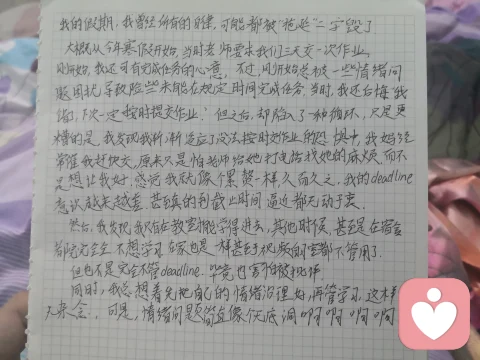 我的假期,我曾经所有的时律,可能都被"拖延"二字毁了
大概从今年寒假开始,当时老师要求我们三天交一次作业。
刚开始,我还可有完成任务的心意,不过,刚开始总被一些情绪问
题困扰,导致险些未能在规定时间完成任务,当时,我还后悔我
错,"下次一定按时提交作业!"但之后,却陷入了一种循环,只是更
糟的是,我发现我渐渐适应了没法按时交作业的恐惧中,我妈经
常催我赶快交,原来只是怕老师给她打电话找她的麻烦,而不
是想让我好,感觉我就像个累赘一样,久而久之,我的deadline
意识越来越差,甚至真的到截止时间逼近都无动于衷。
然后,我发现我只有在教室才能学得进去,其他时候,甚至是在宿舍
都完完全全不想学习,在家也是一样,甚至于视频自习室都不管用了.
但也不是完全不管deadline.毕竟也害怕被批评.
同时,我总想着先把自己的情绪治理好,再管学习,这样
无杂念,可是,情绪问题简直像个无底洞啊啊啊啊